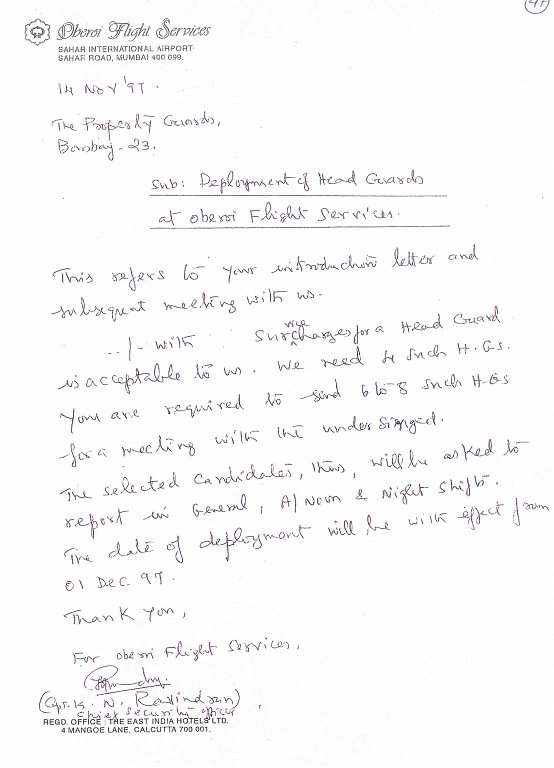 47
Oberoi Flight Services
SAHAR INTERNATIONAL AIRPORT
SAHAR ROAD, MUMBAI 400 099.
14 Nov '97.
The Property Guards,
Bombay-23.
Sub: Deployment of Head Guards
at Oberoi Flight Services.
This refers to your introduction letter and
subsequent meeting with us.
../- with Survice charges for a Head Guard
is acceptable to us. We need 4 such H.Gs.
You are required to send 6 to 8 such H.Gs
for a meeting with the undersigned.
The selected candidates, thus, will be asked to
report in General, A/Noon & Night Shifts.
The date of deployment will be with effect from
01 Dec 97.
Thank you,
For Oberoi Flight Services,
N. Ravindran)
Chief Security Officer
REGD. OFFICE : THE EAST INDIA HOTELS LTD.
4 MANGOE LANE, CALCUTTA 700 001.